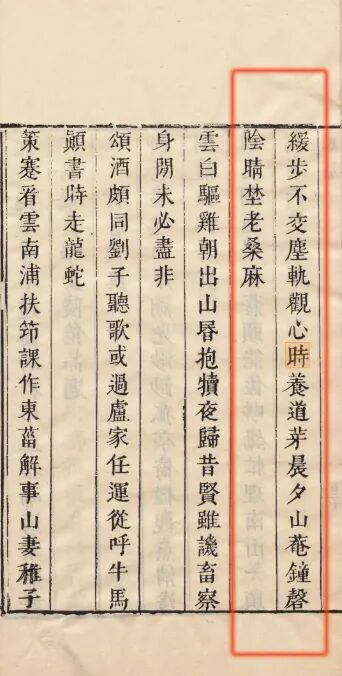 緩步不交塵軌觀心時養道芽晨夕山菴鐘磬
陰晴埜老桑麻
雲白驅雞朝出山昬抱犢夜歸昔賢雖譏畜察
身閒未必盡非
頌酒頗同劉子聽歌或過盧家任運從呼牛馬
顛書時走龍蛇
策蹇看雲南浦扶笻課作東菑解事山妻稚子